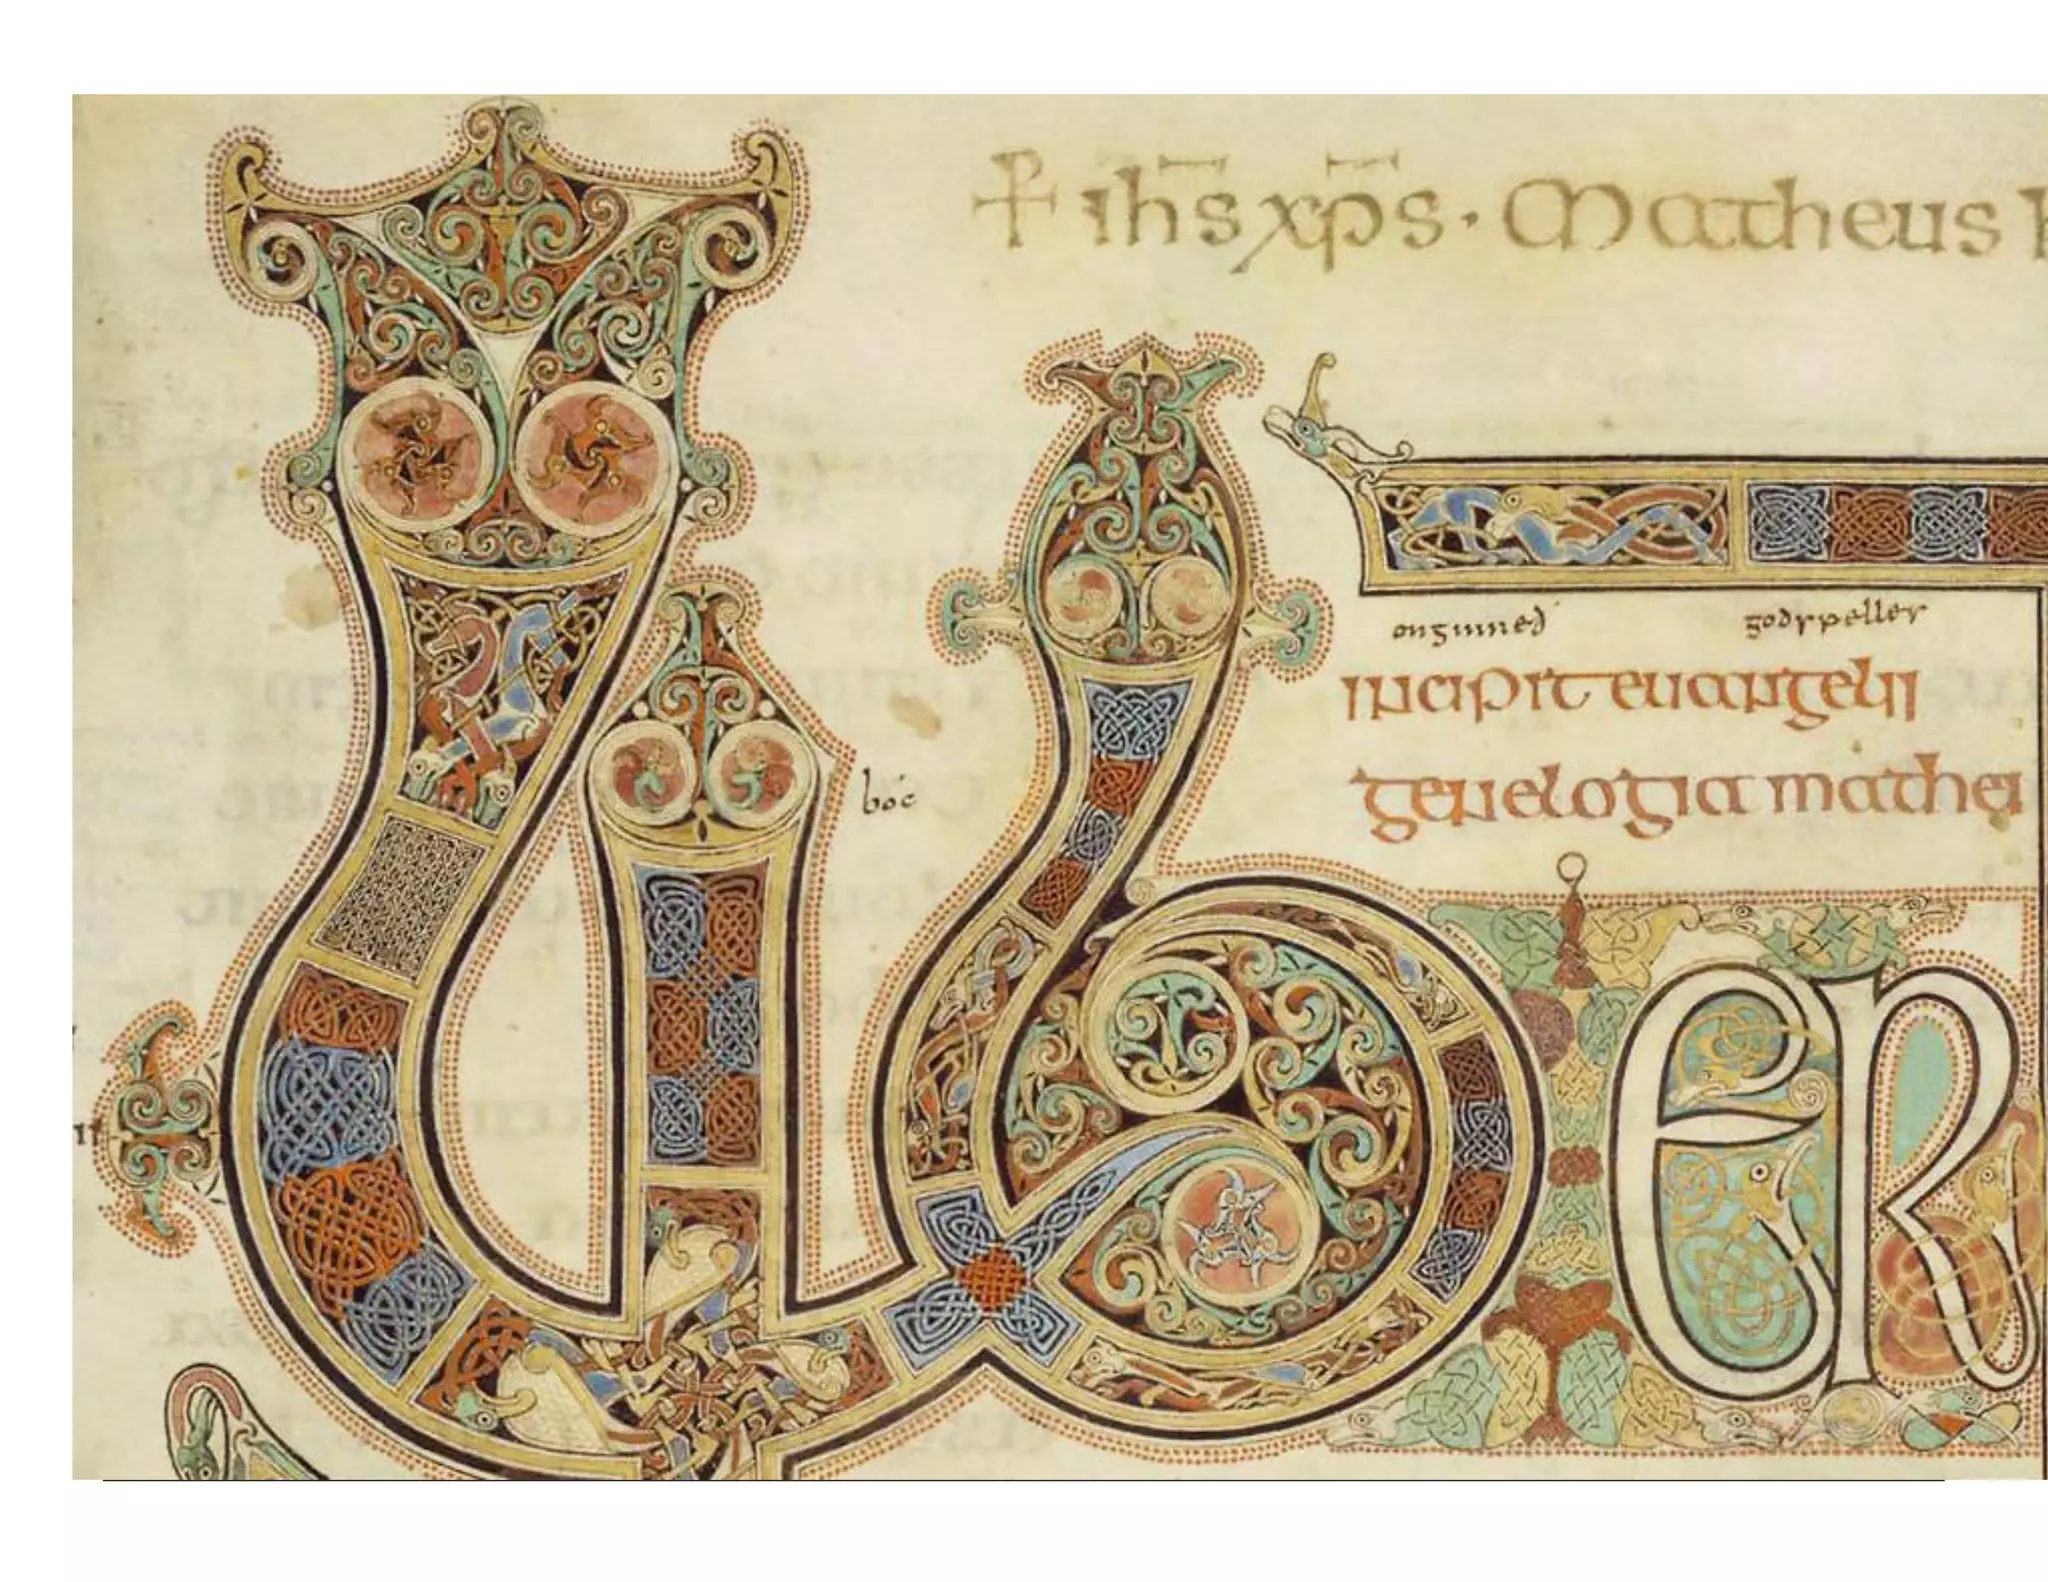 + ih̄s xp̄s · Matheus
onginneð godspelles
incipit euangelii
genelogia mathei
boc
LIBER